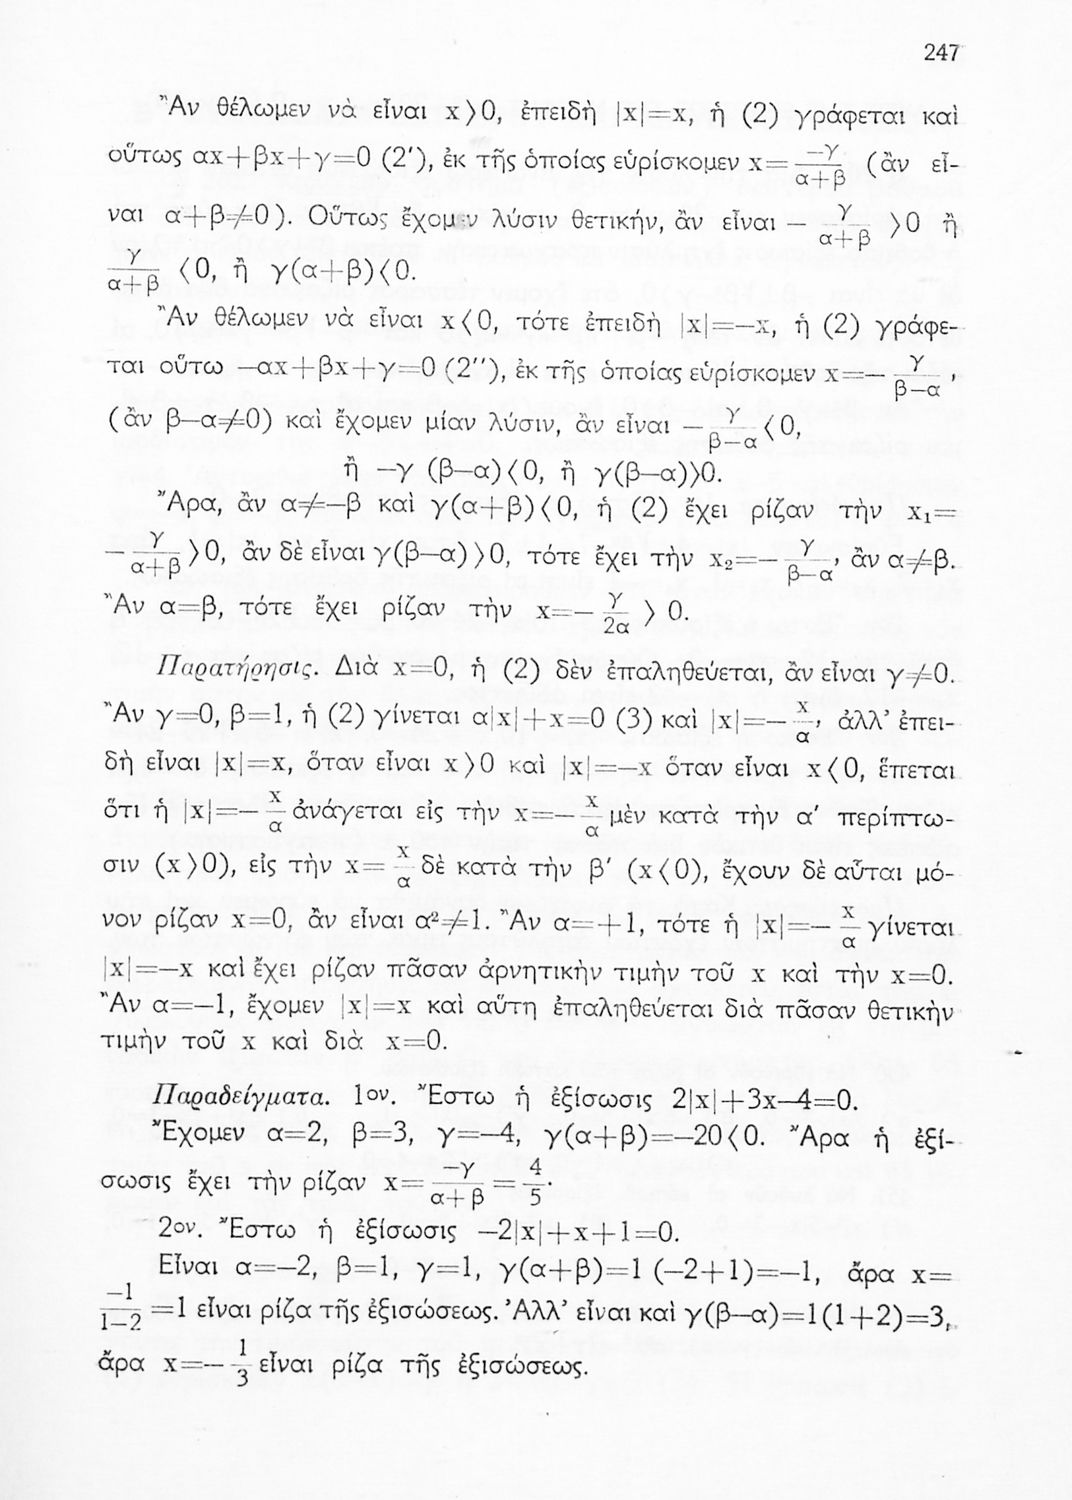 247
Ἂν θέλωμεν νὰ εἶναι x⟩0, ἐπειδὴ |x|=x, ἡ (2) γράφεται καὶ
οὕτως αx+βx+γ=0 (2′), ἐκ τῆς ὁποίας εὑρίσκομεν x= −γ/(α+β) (ἂν εἶ-
ναι α+β≠0). Οὕτως ἔχομεν λύσιν θετικήν, ἂν εἶναι − γ/(α+β) ⟩0 ἢ
γ/(α+β) ⟨0, ἢ γ(α+β)⟨0.
Ἂν θέλωμεν νὰ εἶναι x⟨0, τότε ἐπειδὴ |x|=−x, ἡ (2) γράφε-
ται οὕτω −αx+βx+γ=0 (2″), ἐκ τῆς ὁποίας εὑρίσκομεν x=− γ/(β−α) ,
(ἂν β−α≠0) καὶ ἔχομεν μίαν λύσιν, ἂν εἶναι − γ/(β−α) ⟨0,
ἢ −γ (β−α)⟨0, ἢ γ(β−α)⟩0.
Ἄρα, ἂν α≠−β καὶ γ(α+β)⟨0, ἡ (2) ἔχει ρίζαν τὴν x₁=
− γ/(α+β) ⟩0, ἂν δὲ εἶναι γ(β−α)⟩0, τότε ἔχει τὴν x₂=− γ/(β−α), ἂν α≠β.
Ἂν α=β, τότε ἔχει ρίζαν τὴν x=− γ/2α ⟩ 0.
Παρατήρησις. Διὰ x=0, ἡ (2) δὲν ἐπαληθεύεται, ἂν εἶναι γ≠0.
Ἂν γ=0, β=1, ἡ (2) γίνεται α|x|+x=0 (3) καὶ |x|=− x/α, ἀλλ’ ἐπει-
δὴ εἶναι |x|=x, ὅταν εἶναι x⟩0 καὶ |x|=−x ὅταν εἶναι x⟨0, ἕπεται
ὅτι ἡ |x|=− x/α ἀνάγεται εἰς τὴν x=− x/α μὲν κατὰ τὴν α′ περίπτω-
σιν (x⟩0), εἰς τὴν x= x/α δὲ κατὰ τὴν β′ (x⟨0), ἔχουν δὲ αὗται μό-
νον ρίζαν x=0, ἂν εἶναι α²≠1. Ἂν α=+1, τότε ἡ |x|=− x/α γίνεται
|x|=−x καὶ ἔχει ρίζαν πᾶσαν ἀρνητικὴν τιμὴν τοῦ x καὶ τὴν x=0.
Ἂν α=−1, ἔχομεν |x|=x καὶ αὕτη ἐπαληθεύεται διὰ πᾶσαν θετικὴν
τιμὴν τοῦ x καὶ διὰ x=0.
Παραδείγματα. 1ον. Ἔστω ἡ ἐξίσωσις 2|x|+3x−4=0.
Ἔχομεν α=2, β=3, γ=−4, γ(α+β)=−20⟨0. Ἄρα ἡ ἐξί-
σωσις ἔχει τὴν ρίζαν x= −γ/(α+β) = 4/5.
2ον. Ἔστω ἡ ἐξίσωσις −2|x|+x+1=0.
Εἶναι α=−2, β=1, γ=1, γ(α+β)=1 (−2+1)=−1, ἄρα x=
−1/(1−2) =1 εἶναι ρίζα τῆς ἐξισώσεως. Ἀλλ’ εἶναι καὶ γ(β−α)=1(1+2)=3,
ἄρα x=− 1/3 εἶναι ρίζα τῆς ἐξισώσεως.